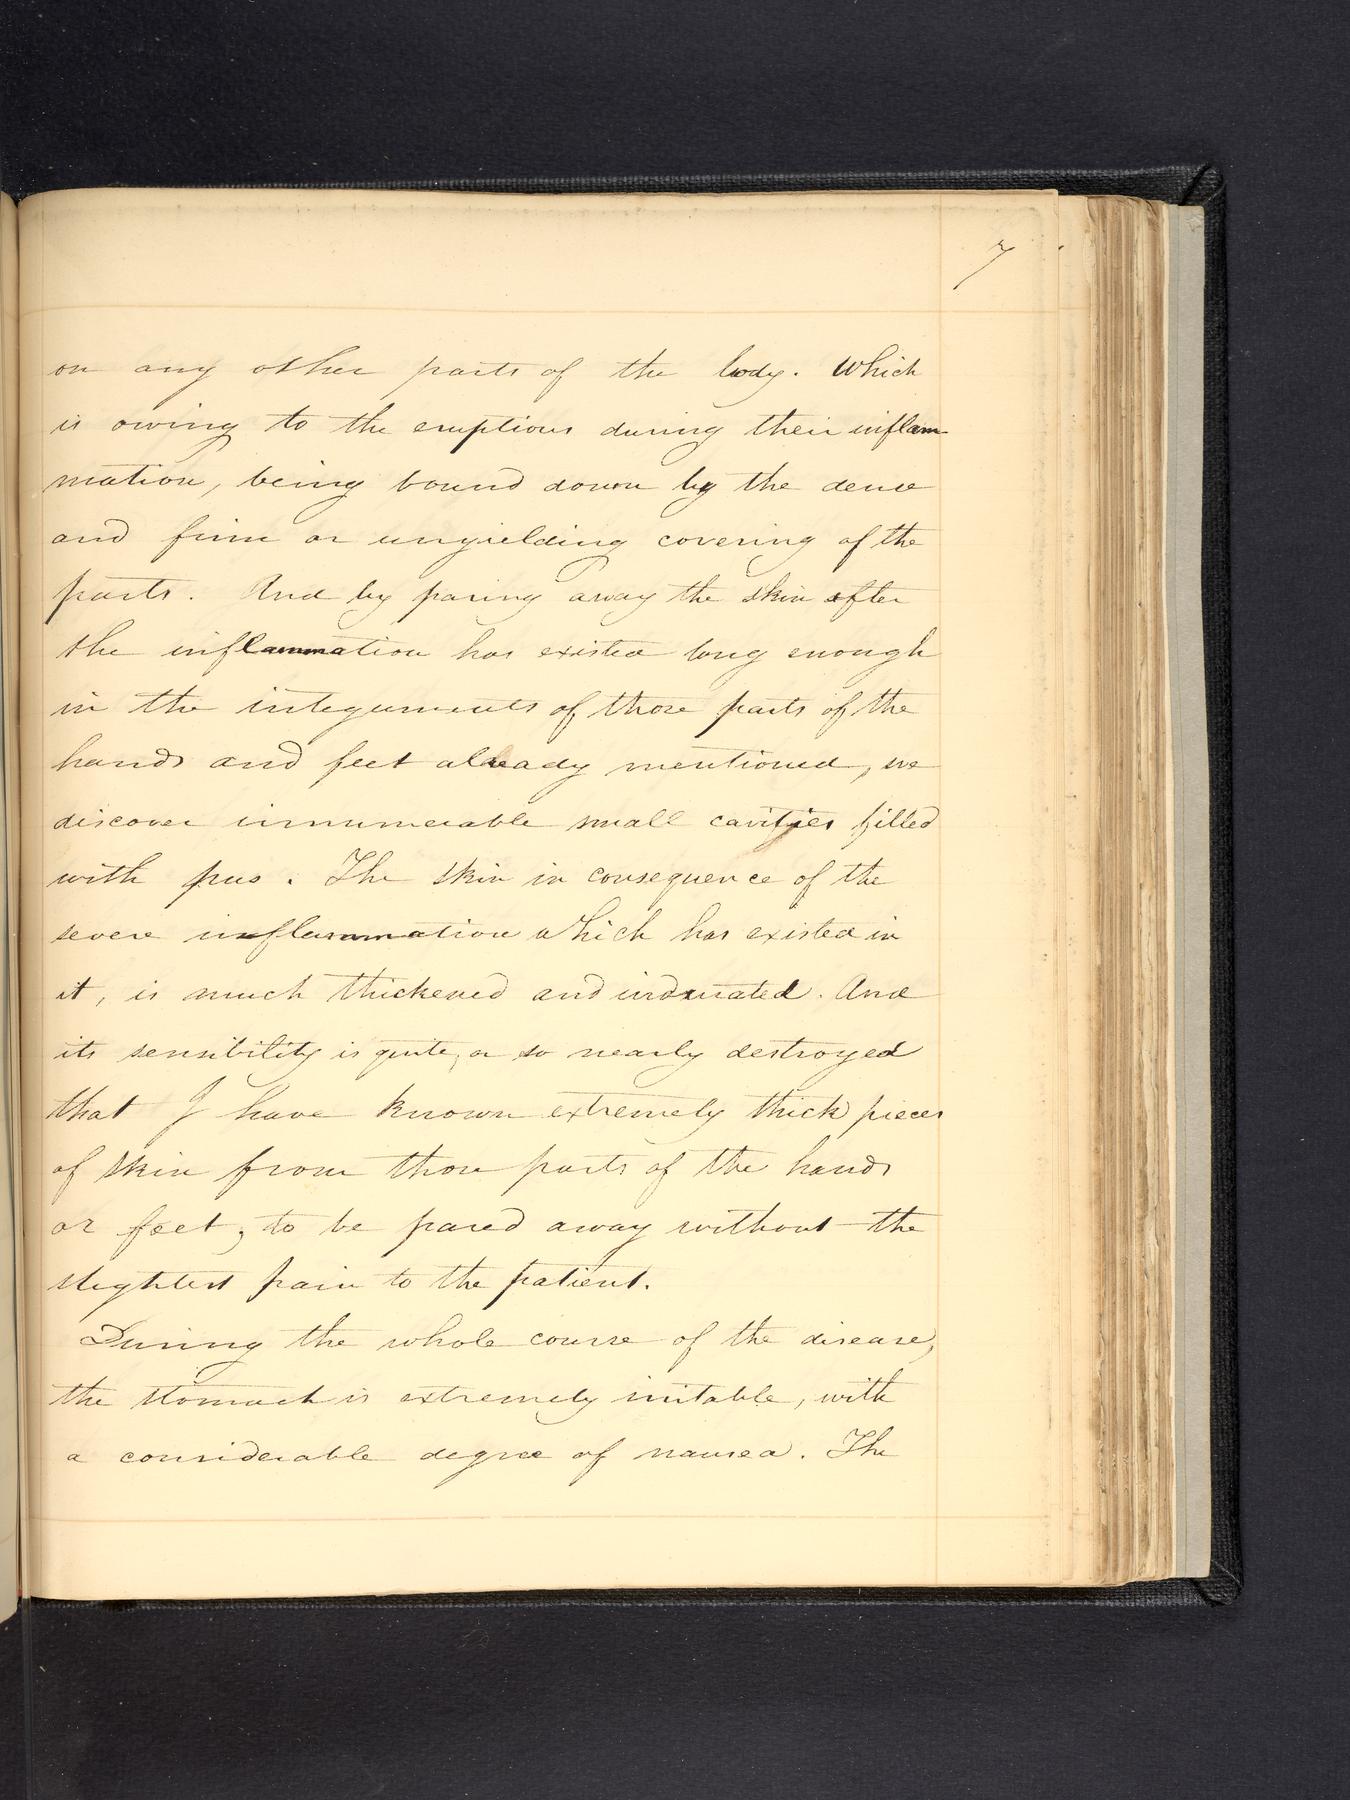 7
on any other parts of the body. Which
is owing to the eruptions during their inflam-
mation, being bound down by the dense
and firm or unyielding covering of the
parts. And by paring away the skin after
the inflammation has existed long enough
in the integuments of those parts of the
hands and feet already mentioned, we
discover innumerable small cavities filled
with pus. The skin in consequence of the
severe inflammation which has existed in
it, is much thickened and indurated. And
its sensibility is quite, or so nearly destroyed
that I have known extremely thick pieces
of skin from those parts of the hands
or feet, to be pared away without the
slightest pain to the patient.
During the whole course of the disease,
the stomach is extremely irritable, with
a considerable degree of nausea. The